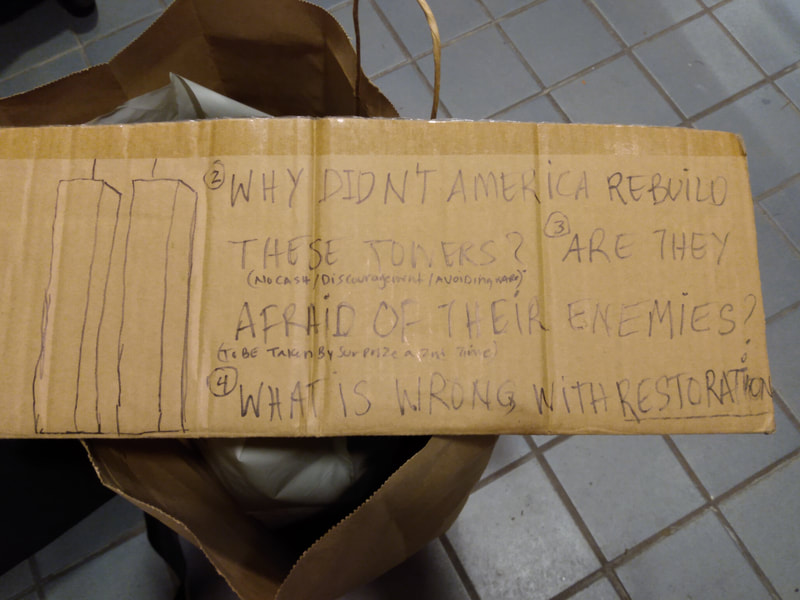 ② WHY DIDN'T AMERICA REBUILD
THESE TOWERS? ③ ARE THEY
(NO CASH / Discouragement / AVOIDING
AFRAID OF THEIR ENEMIES?
(TO BE TAKEN BY SURPRIZE A 2nd TIME)
④ WHAT IS WRONG WITH RESTORATION?